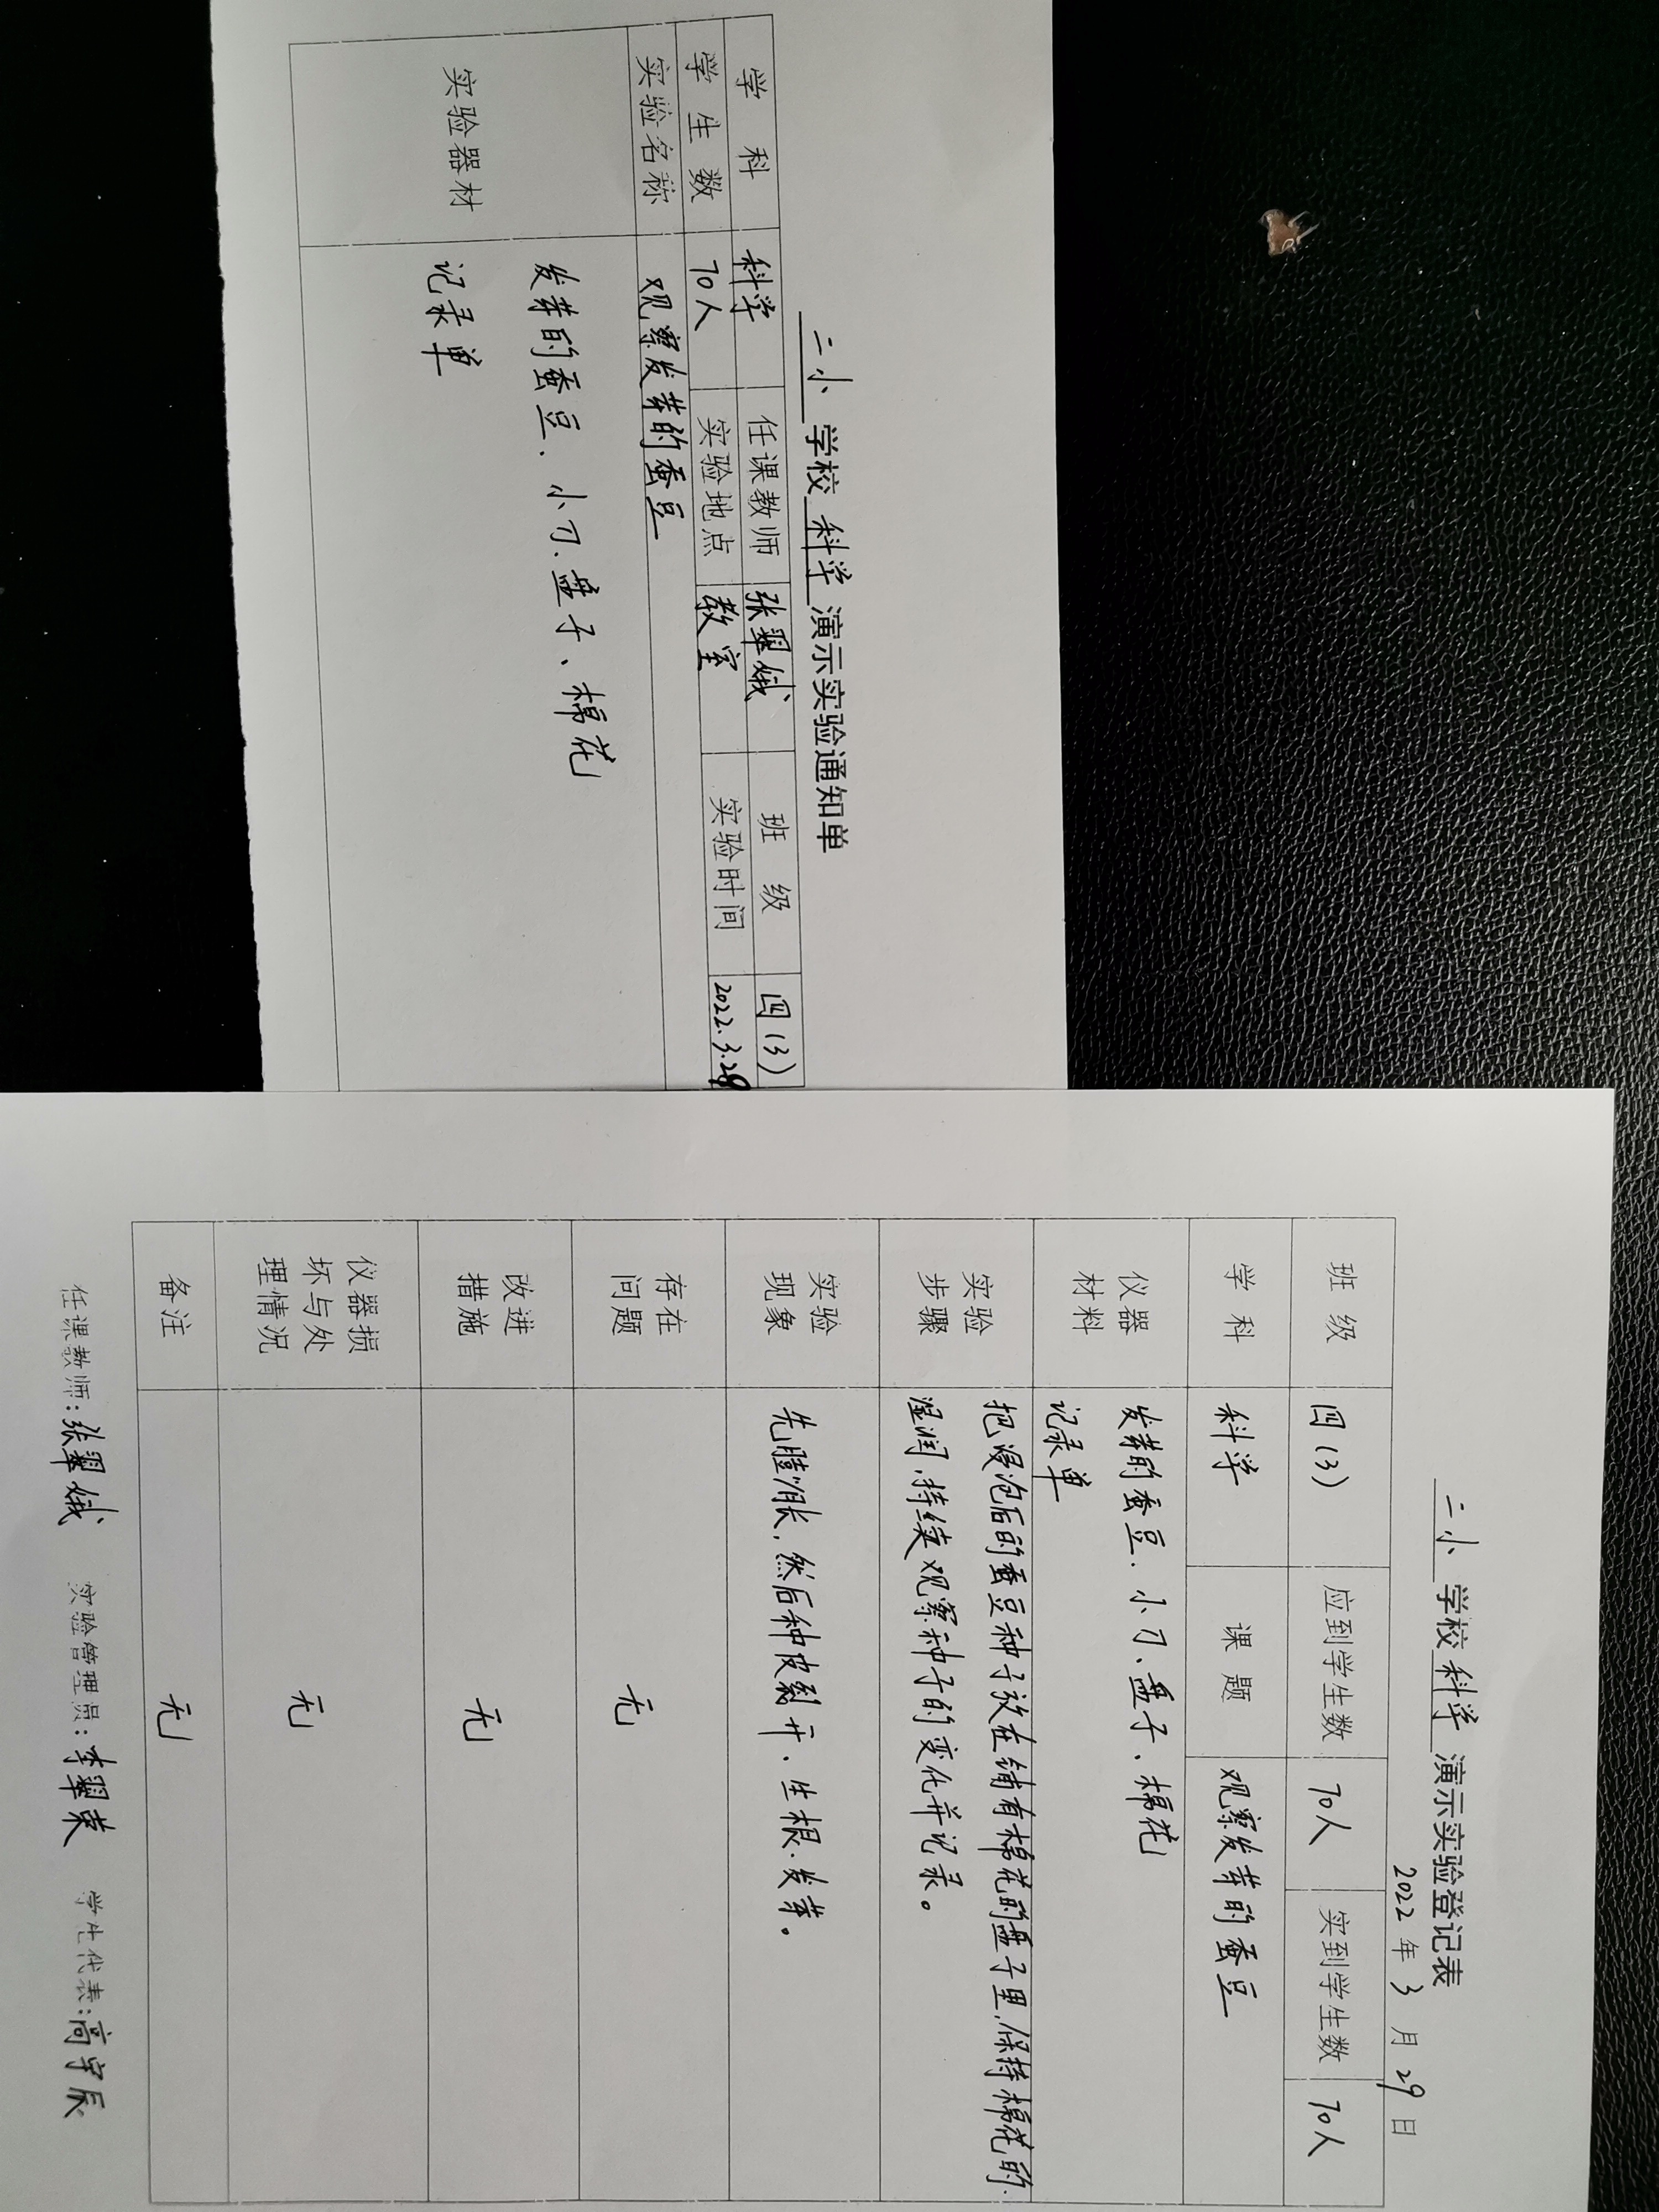 二小 学校 科学 演示实验通知单
学 科 科学 任课教师 张翠娥 班 级 四（3）
学 生 数 70人 实验地点 教室 实验时间 2022.3.29
实验名称 观察发芽的蚕豆
实验器材 发芽的蚕豆、小刀、盘子、棉花
记录单
二小 学校 科学 演示实验登记表
2022 年 3 月 29 日
班 级 四（3） 应到学生数 70人 实到学生数 70人
学 科 科学 课 题 观察发芽的蚕豆
仪器
材料
发芽的蚕豆、小刀、盘子、棉花
记录单
实验
步骤
把浸泡后的蚕豆种子放在铺有棉花的盘子里，保持棉花的
湿润，持续观察种子的变化并记录。
实验
现象
先膨胀，然后种皮裂开、生根、发芽。
存在
问题
无
改进
措施
无
仪器损
坏与处
理情况
无
备注 无
任课教师：张翠娥 实验管理员：李翠荣 学生代表：高宇辰